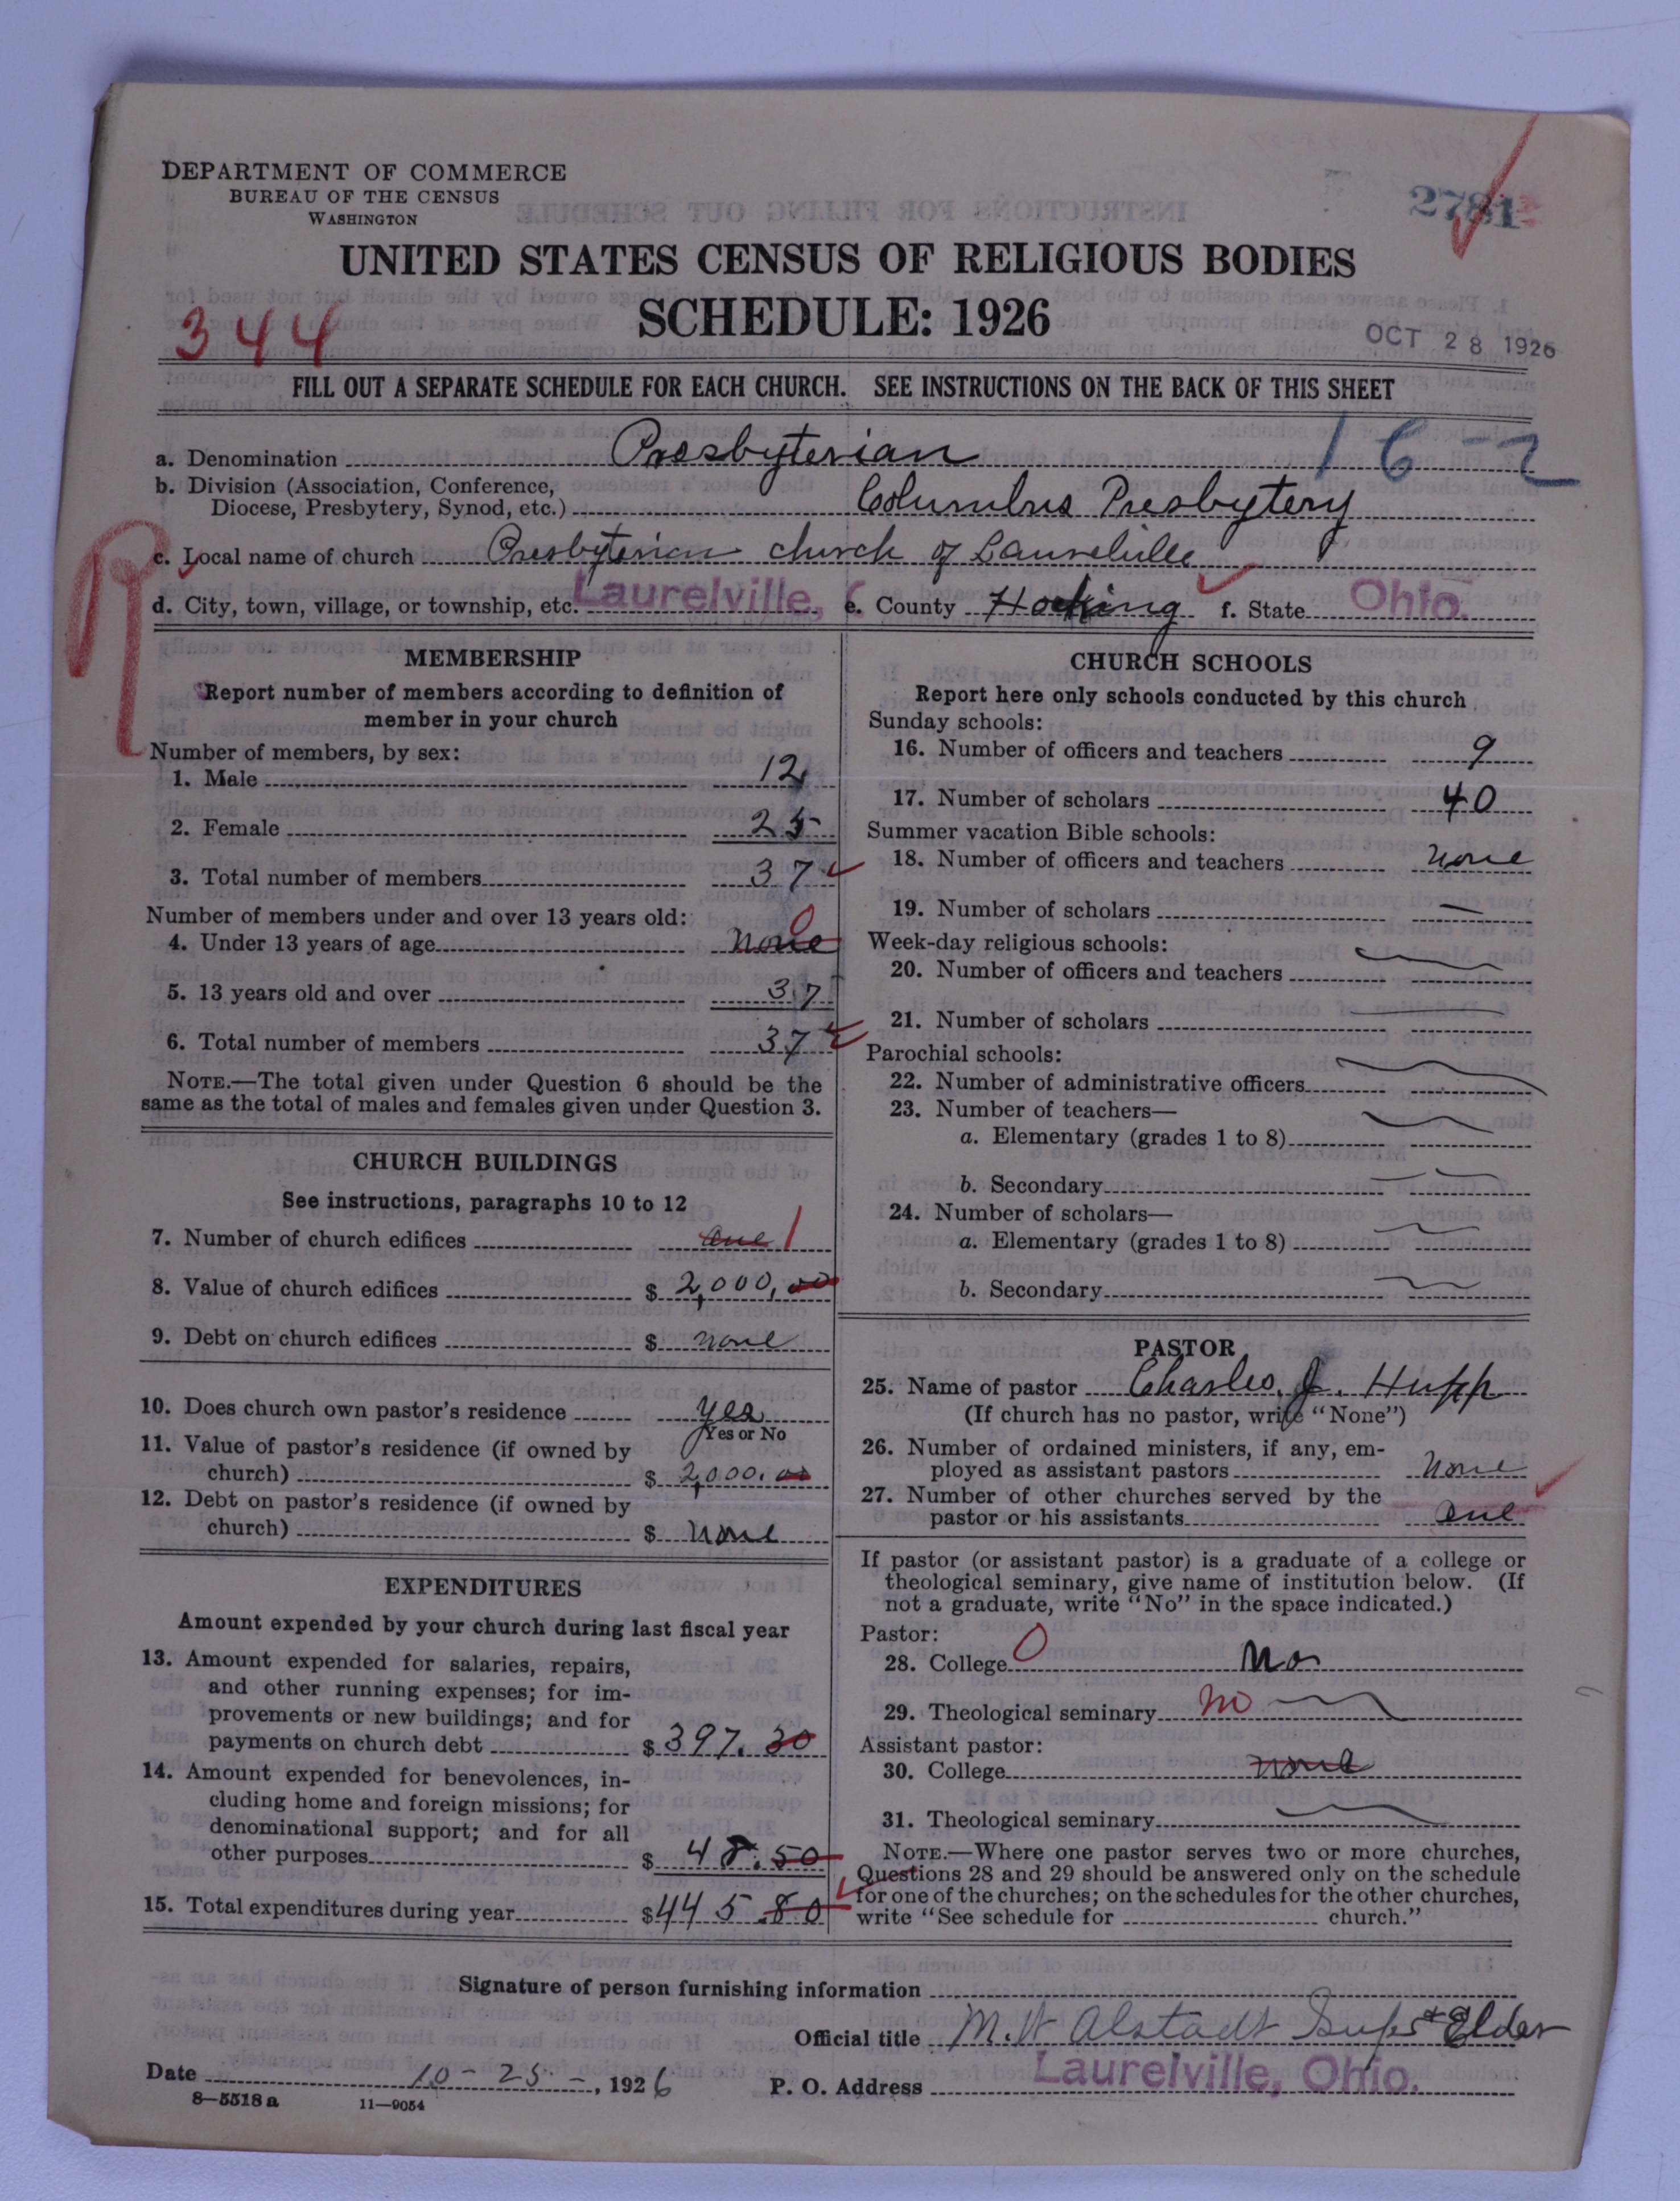 DEPARTMENT OF COMMERCE
BUREAU OF THE CENSUS
WASHINGTON
2781
UNITED STATES CENSUS OF RELIGIOUS BODIES
SCHEDULE: 1926
344
OCT 28 1926
FILL OUT A SEPARATE SCHEDULE FOR EACH CHURCH. SEE INSTRUCTIONS ON THE BACK OF THIS SHEET
a. Denomination Presbyterian 16-2
b. Division (Association, Conference,
Diocese, Presbytery, Synod, etc.) Columbus Presbytery
c. Local name of church Presbyterian church of Laurelville
d. City, town, village, or township, etc. Laurelville, e. County Hocking f. State Ohio.
R
MEMBERSHIP
Report number of members according to definition of
member in your church
Number of members, by sex:
1. Male 12
2. Female 25
3. Total number of members 37
Number of members under and over 13 years old:
4. Under 13 years of age none 0
5. 13 years old and over 37
6. Total number of members 37
NOTE.—The total given under Question 6 should be the
same as the total of males and females given under Question 3.
CHURCH BUILDINGS
See instructions, paragraphs 10 to 12
7. Number of church edifices one 1
8. Value of church edifices $ 2,000.00
9. Debt on church edifices $ none
10. Does church own pastor's residence yes
Yes or No
11. Value of pastor's residence (if owned by
church) $ 2,000.00
12. Debt on pastor's residence (if owned by
church) $ none
EXPENDITURES
Amount expended by your church during last fiscal year
13. Amount expended for salaries, repairs,
and other running expenses; for im-
provements or new buildings; and for
payments on church debt $ 397.30
14. Amount expended for benevolences, in-
cluding home and foreign missions; for
denominational support; and for all
other purposes $ 48.50
15. Total expenditures during year $ 445.80
CHURCH SCHOOLS
Report here only schools conducted by this church
Sunday schools:
16. Number of officers and teachers 9
17. Number of scholars 40
Summer vacation Bible schools:
18. Number of officers and teachers none
19. Number of scholars —
Week-day religious schools:
20. Number of officers and teachers
21. Number of scholars
Parochial schools:
22. Number of administrative officers
23. Number of teachers—
a. Elementary (grades 1 to 8)
b. Secondary
24. Number of scholars—
a. Elementary (grades 1 to 8)
b. Secondary
PASTOR
25. Name of pastor Charles J. Hupp
(If church has no pastor, write "None")
26. Number of ordained ministers, if any, em-
ployed as assistant pastors none
27. Number of other churches served by the
pastor or his assistants one
If pastor (or assistant pastor) is a graduate of a college or
theological seminary, give name of institution below. (If
not a graduate, write "No" in the space indicated.)
Pastor:
28. College 0 no
29. Theological seminary no
Assistant pastor:
30. College none
31. Theological seminary
NOTE.—Where one pastor serves two or more churches,
Questions 28 and 29 should be answered only on the schedule
for one of the churches; on the schedules for the other churches,
write "See schedule for church."
Signature of person furnishing information
Official title M. W Alstadt Supt & Elder
Date 10-25-, 1926 P. O. Address Laurelville, Ohio.
8—5518 a 11—9054